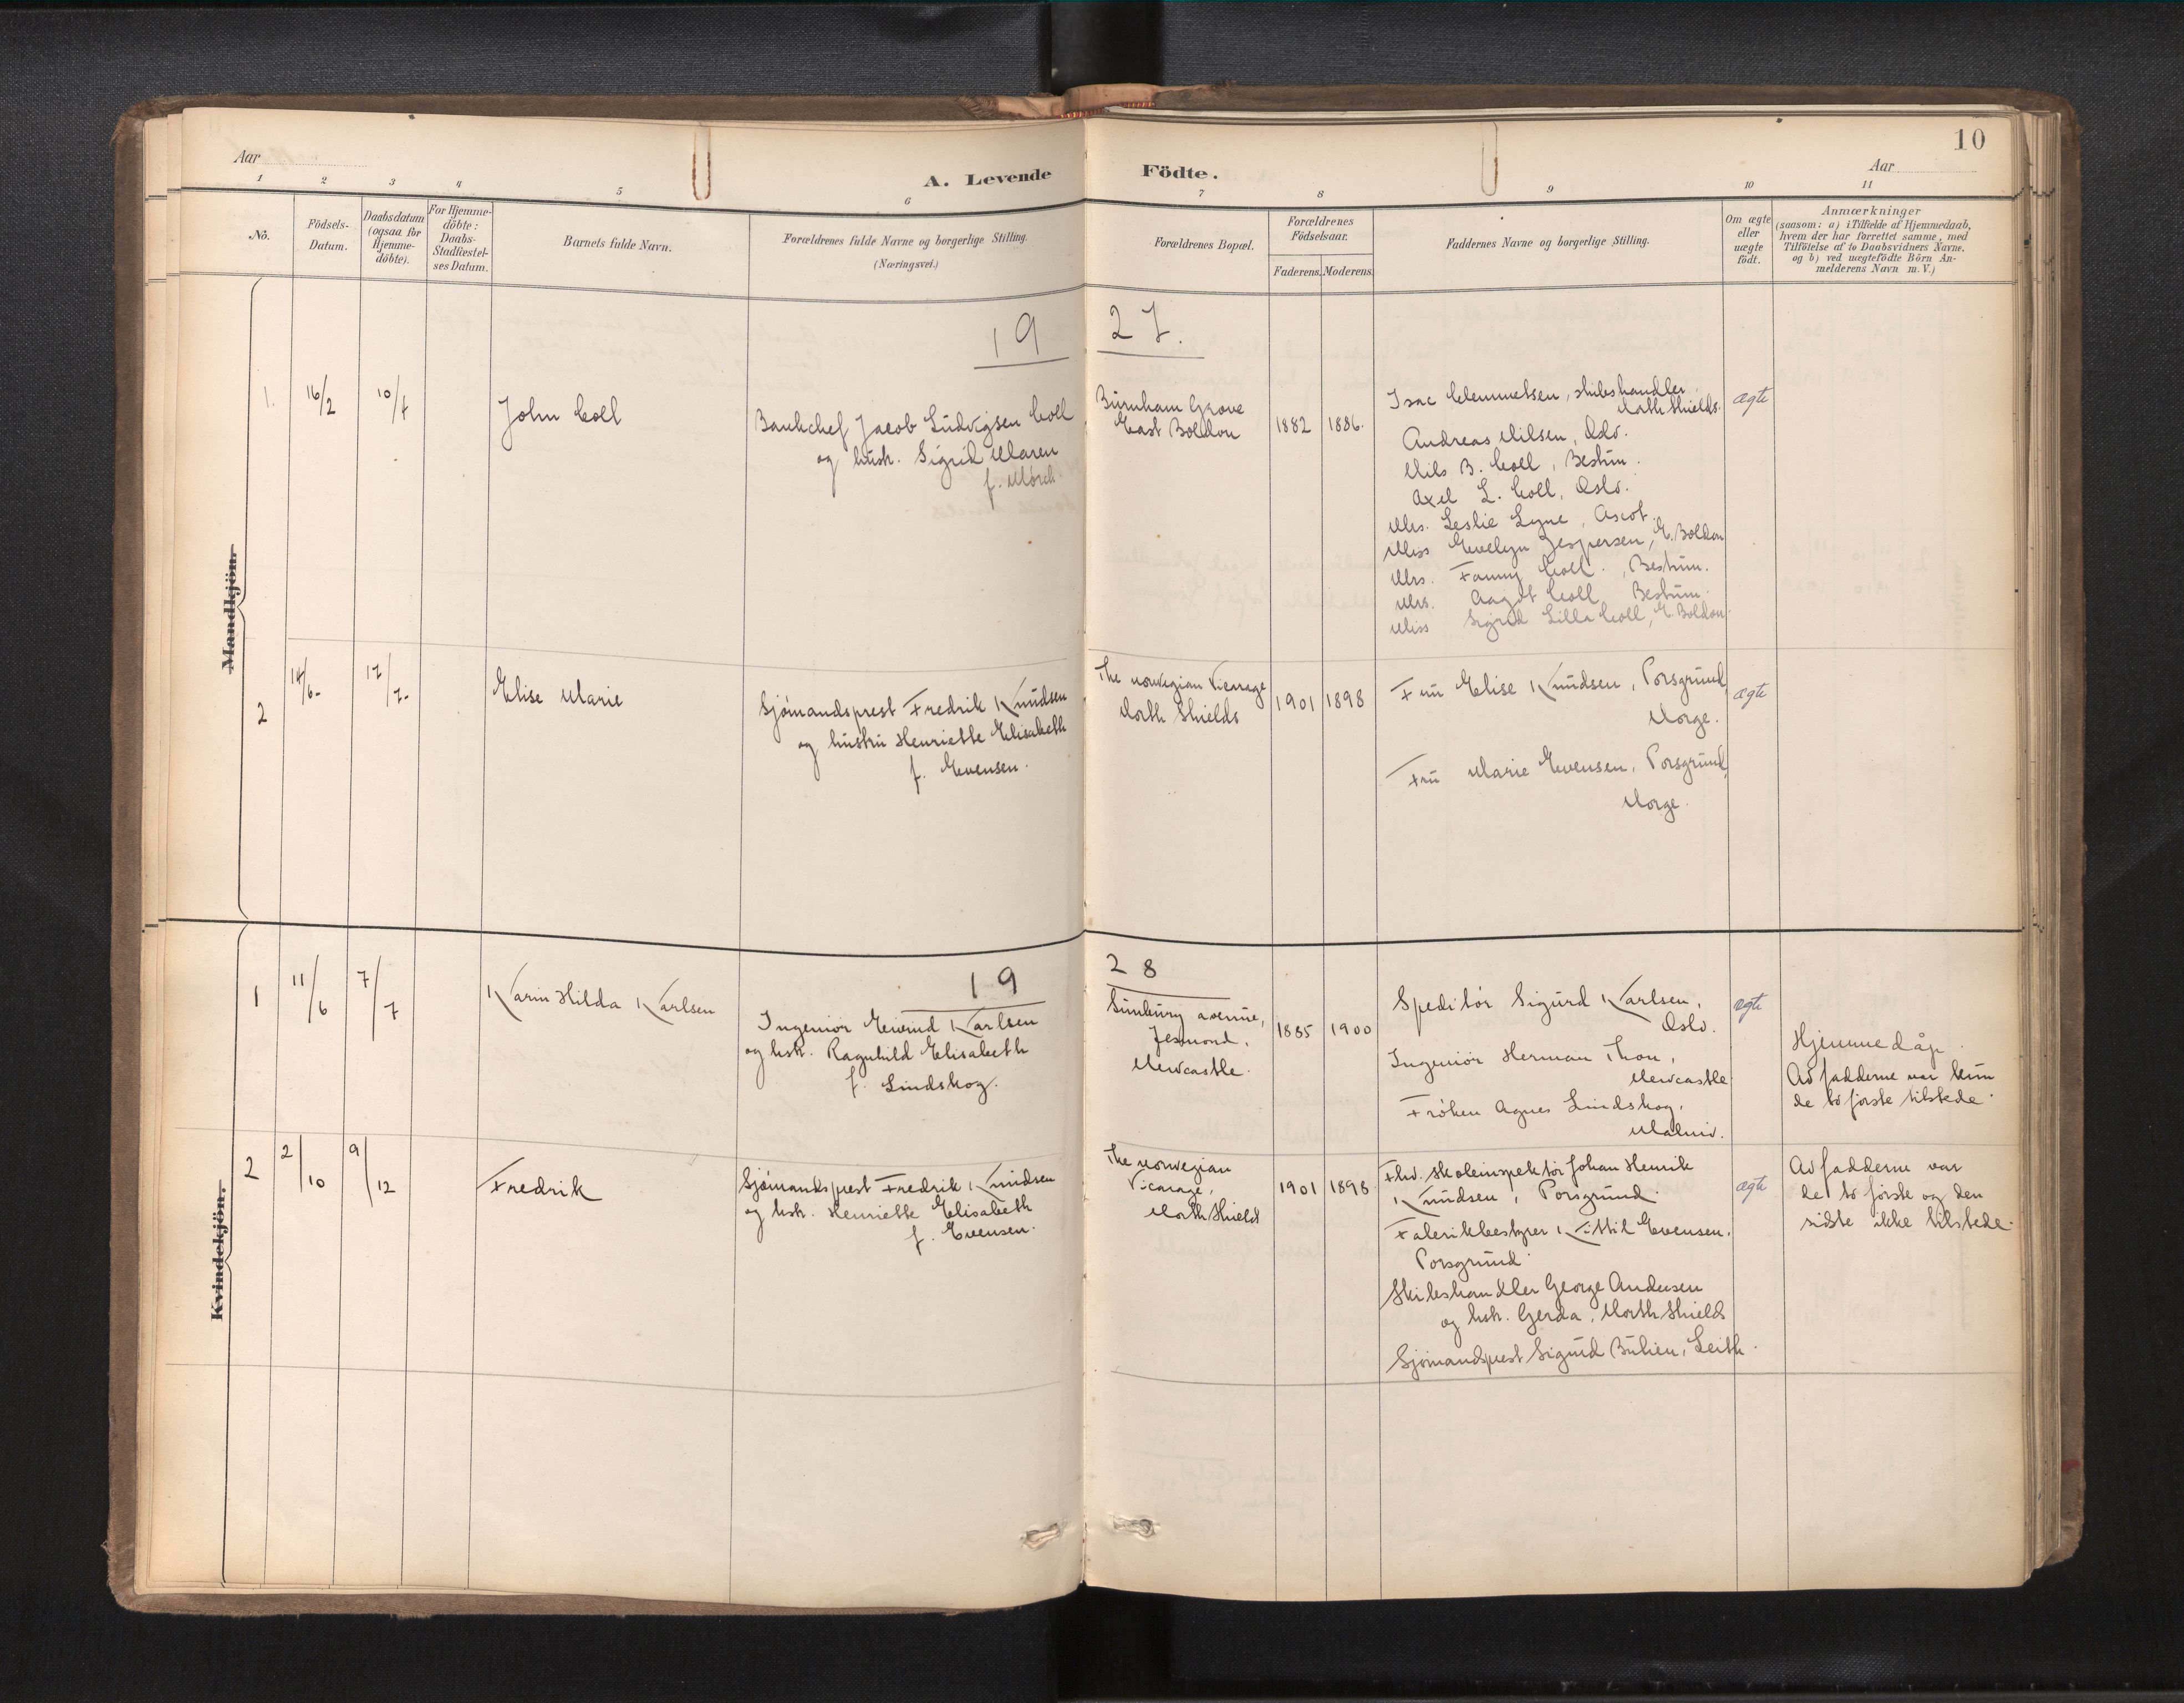 10
Aar
Aar
A. Levende Födte.
1 2 3 4 5 6 7 8 9 10 11
No.
Födsels-
Datum.
Daabsdatum
(ogsaa for
Hjemme-
döbte).
For Hjemme-
döbte:
Daabs-
Stadfæstel-
ses Datum.
Barnets fulde Navn.
Forældrenes fulde Navne og borgerlige Stilling.
(Næringsvei.)
Forældrenes Bopæl.
Forældrenes
Födselsaar.
Faderens. Moderens.
Faddernes Navne og borgerlige Stilling.
Om ægte
eller
uægte
født.
Anmærkninger
(saasom: a) i Tilfælde af Hjemmedaab,
hvem der har forrettet samme, med
Tilföielse af to Daabsvidners Navne,
og b) ved uægtefödte Börn An-
melderens Navn m. V.)
Mandkjön.
1927.
1. 16/2 10/4
John Coll
Bankchef Jacob Ludvigsen Coll
og hustr. Sigrid Maren
f. Mörch
Burnham Grove
East Boldon
1882 1886.
Isac Clemmetsen, skibshandler
North Shields.
Andreas Nilsen, Oslo.
Nils B. Coll, Bestum.
Axel L. Coll, Oslo.
Mrs. Leslie Lyne, Ascot.
Miss Evelyn Jespersen, E. Boldon
Mrs. Fanny Coll, Bestum.
Mrs. Aagot Coll, Bestum.
Miss Sigrid Lilla Coll, E. Boldon.
ægte
2 14/6- 17/7-
Elise Marie
Sjömandsprest Fredrik Knudsen
og hustru Henriette Elisabeth
f. Evensen.
The norwegian Vicarage
North Shields
1901 1898
Fru Elise Knudsen, Porsgrund,
Norge.
Fru Marie Evensen, Porsgrund,
Norge.
ægte
Kvindekjön.
1928
1 11/6 7/7
Karin Hilda Karlsen
Ingeniör Eivind Karlsen
og hstr. Ragnhild Elisabeth
f. Lindskog.
Sunbury avenue,
Jesmond,
Newcastle.
1885 1900
Speditör Sigurd Karlsen,
Oslo.
Ingeniör Herman Thon,
Newcastle
Fröken Agnes Lindskog,
Malmö.
ægte
Hjemmedåp.
Av fadderne var kun
de to förste tilstede.
2 2/10 9/12
Fredrik
Sjömandsprest Fredrik Knudsen
og hstr. Henriette Elisabeth
f. Evensen.
The norwegian
Vicarage,
North Shields
1901 1898
Fhv. skoleinspektör Johan Henrik
Knudsen, Porsgrund.
Fabrikbestyrer Kittil Evensen,
Porsgrund
Skibshandler George Andersen
og hstr. Gerda, North Shields
Sjömandsprest Sigurd Bulien, Leith.
ægte
Av fadderne var
de to förste og den
sidste ikke tilstede.